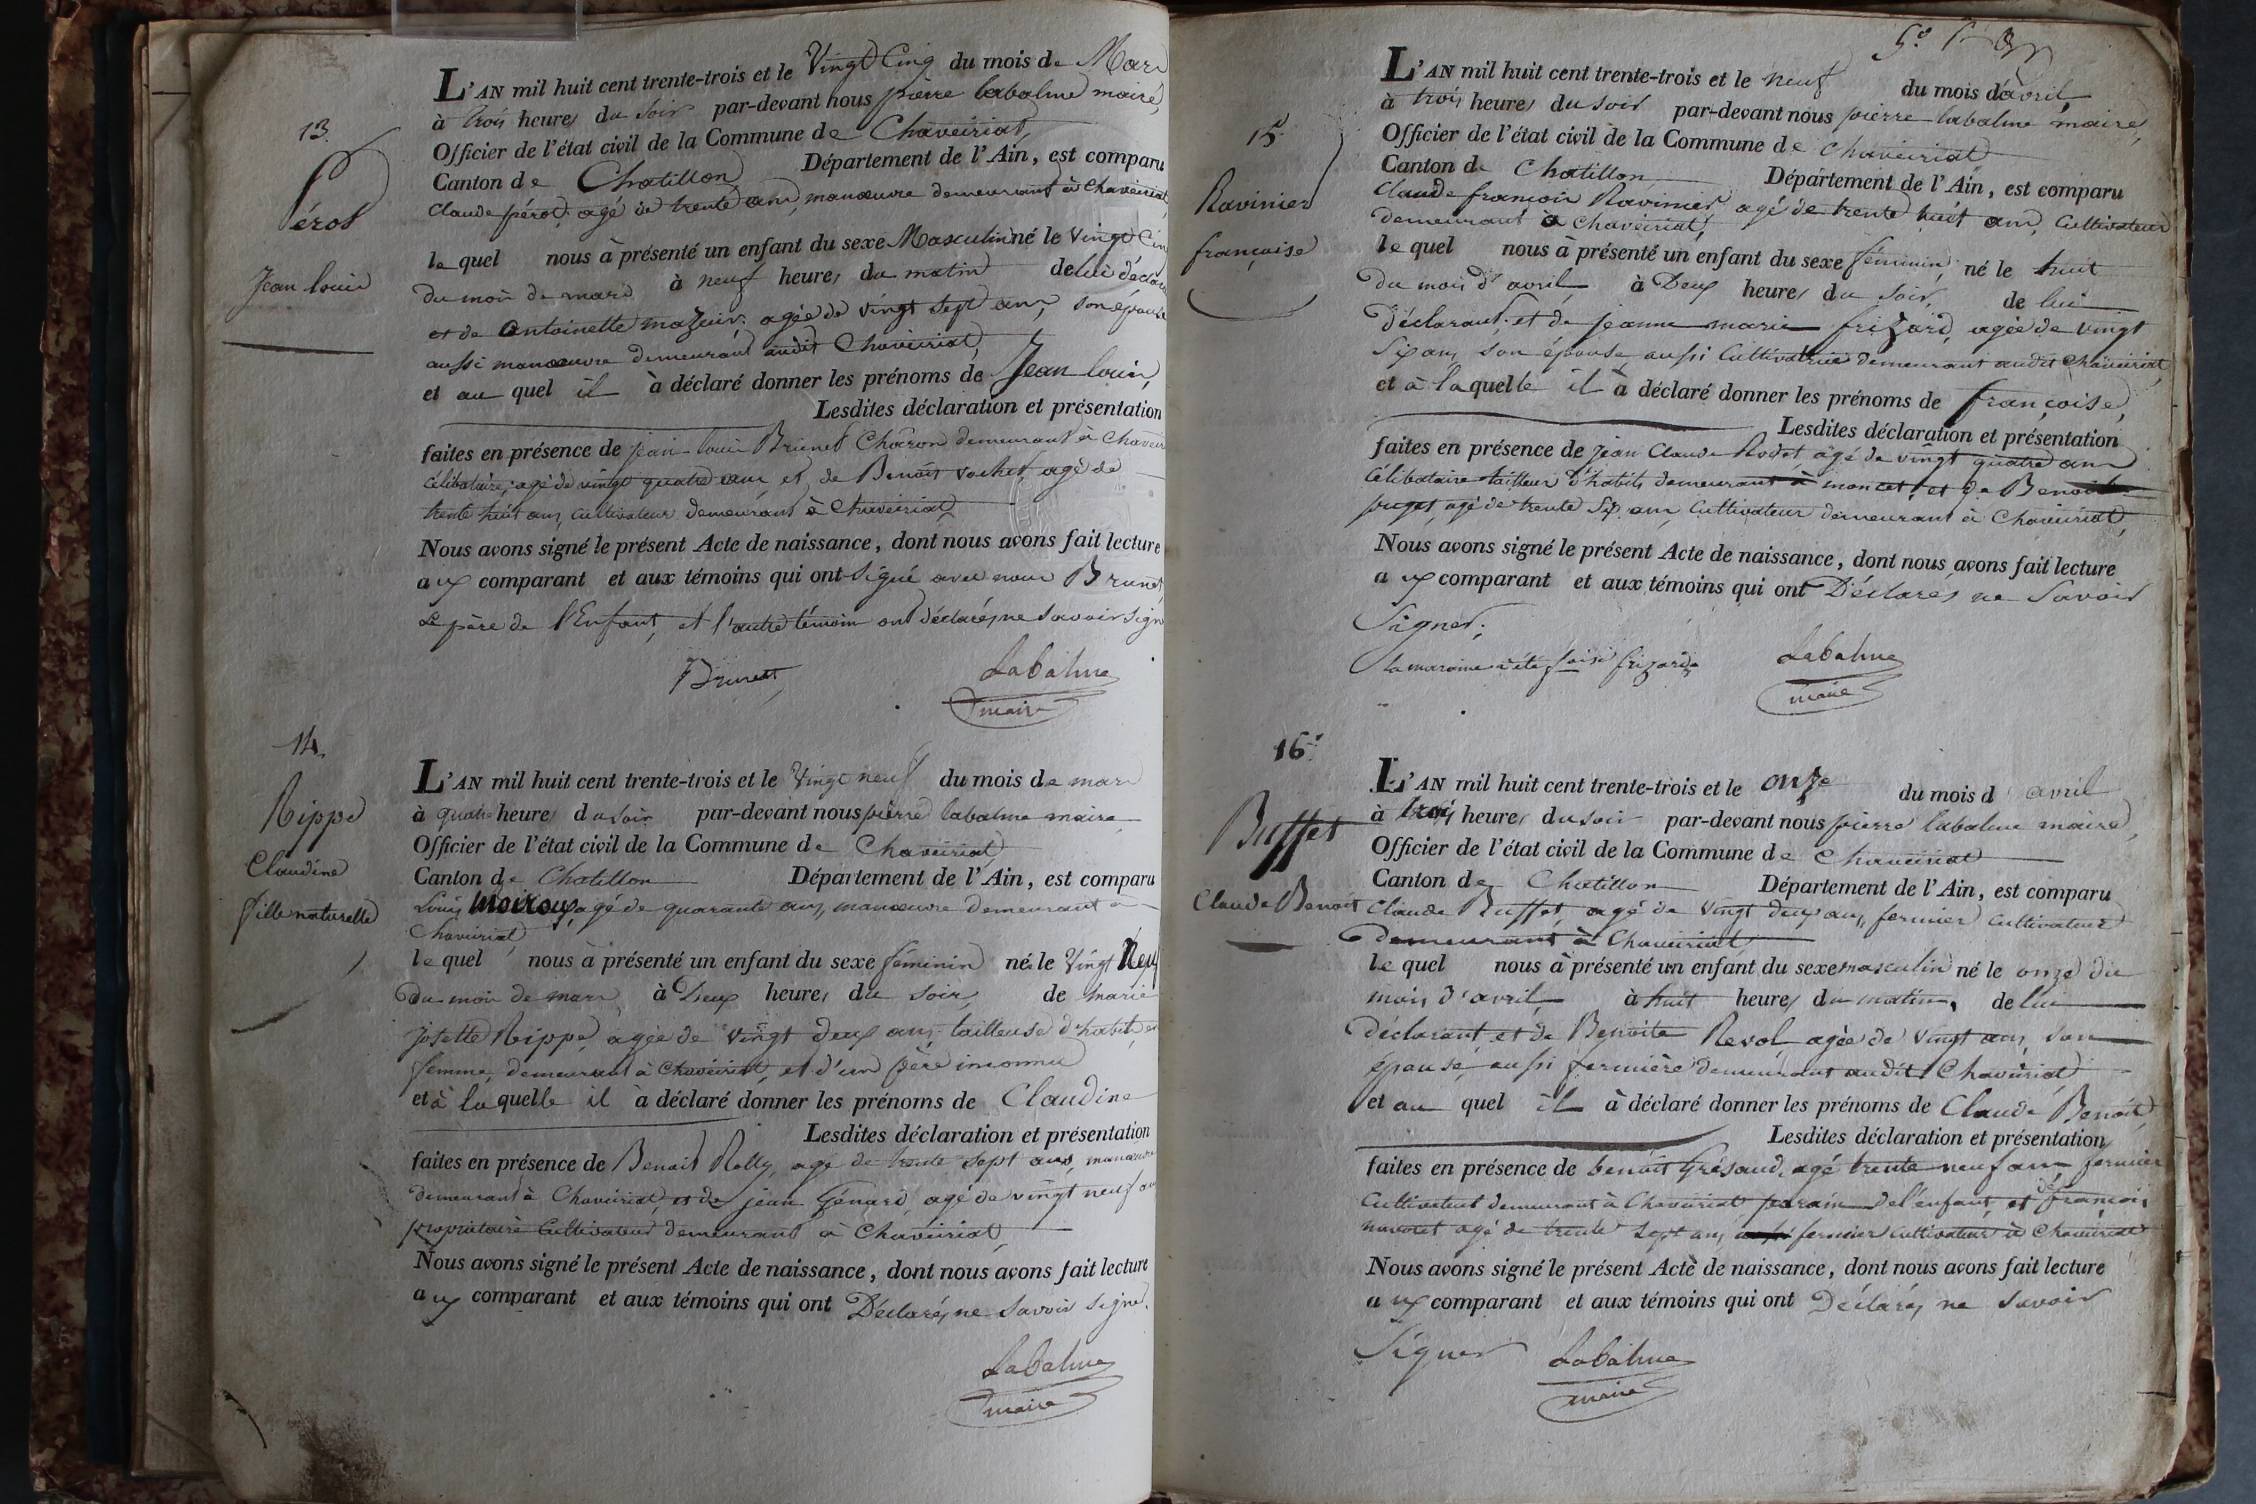 13.
Pérot
Jean louis
L'AN mil huit cent trente-trois et le Vingt Cinq du mois de Mars
à trois heures du soir par-devant nous pierre labalme maire,
Officier de l'état civil de la Commune de Chaveiriat,
Canton de Chatillon Département de l'Ain, est comparu
Claude pérot, agé de trente ans, manœuvre demeurant à Chaveiriat,
le quel nous à présenté un enfant du sexe Masculin né le Vingt Cinq
du mois de mars à neuf heures du matin de lui déclarant
et de antoinette mazuir agée de vingt sept ans, son épouse
aussi manœuvre demeurant audit Chaveiriat,
et au quel il à déclaré donner les prénoms de Jean louis,
Lesdites déclaration et présentation
faites en présence de jean louis Brunet Charon demeurant à Chaveiriat
célibataire, agé de vingt quatre ans, et de Benoit vochet, agé de
trente huit ans, cultivateur demeurant à Chaveiriat,
Nous avons signé le présent Acte de naissance, dont nous avons fait lecture
aux comparant et aux témoins qui ont signé avec nous Brunet,
Le père de l'Enfant, et l'autre témoin ont déclarés ne savoir signer
Brunet
Labalme
maire
14.
Rippe
Claudine
fille naturelle
L'AN mil huit cent trente-trois et le Vingt neuf du mois de mars
à quatre heures du soir par-devant nous pierre labalme maire
Officier de l'état civil de la Commune de Chaveiriat
Canton de Chatillon Département de l'Ain, est comparu
Louis Moiroux, agé de quarante ans, manœuvre demeurant à
Chaveiriat
le quel nous à présenté un enfant du sexe féminin né le Vingt Neuf
du mois de mars à Deux heures du soir, de marie
josette Rippe, agée de vingt deux ans, tailleuse d'habits en
femme, demeurant à Chaveiriat, et d'un père inconnu
et à la quelle il à déclaré donner les prénoms de Claudine
Lesdites déclaration et présentation
faites en présence de Benoit Rolly, agé de trente sept ans, manœuvre
demeurant à Chaveiriat, et de jean Génard, agé de vingt neuf ans
propriétaire Cultivateur demeurant à Chaveiriat,
Nous avons signé le présent Acte de naissance, dont nous avons fait lecture
aux comparant et aux témoins qui ont Déclarés ne savoir signer.
Labalme
maire
15.
Ravinier
françoise
L'AN mil huit cent trente-trois et le neuf du mois d'avril,
à trois heures du soir par-devant nous pierre labalme maire,
Officier de l'état civil de la Commune de Chaveiriat
Canton de Chatillon Département de l'Ain, est comparu
Claude françois Ravinier agé de trente huit ans, Cultivateur
demeurant à Chaveiriat,
le quel nous à présenté un enfant du sexe féminin, né le huit
du mois d'avril, à Deux heures du soir, de lui
Déclarant et de jeanne marie frizard, agée de vingt
Six ans, son épouse aussi Cultivatrice demeurant audit Chaveiriat,
et à la quelle il à déclaré donner les prénoms de françoise,
Lesdites déclaration et présentation
faites en présence de jean Claude Rodet, agé de vingt quatre ans
Célibataire tailleur d'habits demeurant à moncet, et de Benoit
puget, agé de trente Six ans, Cultivateur demeurant à Chaveiriat,
Nous avons signé le présent Acte de naissance, dont nous avons fait lecture
aux comparant et aux témoins qui ont Déclarés ne Savoir
Signer;
la maraine a été frizard
Labalme
maire
16.
Buffet
Claude Benoit
L'AN mil huit cent trente-trois et le onze du mois d avril
à trois heures du soir par-devant nous pierre labalme maire,
Officier de l'état civil de la Commune de Chaveiriat
Canton de Chatillon Département de l'Ain, est comparu
Claude Buffet, agé de vingt deux ans, fermier cultivateur
demeurant à Chaveiriat
le quel nous à présenté un enfant du sexe masculin né le onze du
mois d'avril, à huit heures du matin, de lui
déclarant et de Benoite Revol agée de vingt ans, son
épouse, aussi fermière demeurant audit Chaveiriat
et au quel il à déclaré donner les prénoms de Claude Benoit,
Lesdites déclaration et présentation
faites en présence de benoit Grésaud, agé trente neuf ans fermier
Cultivateur demeurant à Chaveiriat parain de l'enfant, et de françois
agé de trente sept ans, fermier cultivateur à Chaveiriat
Nous avons signé le présent Acte de naissance, dont nous avons fait lecture
aux comparant et aux témoins qui ont Déclarés ne savoir
Signer
Labalme
maire